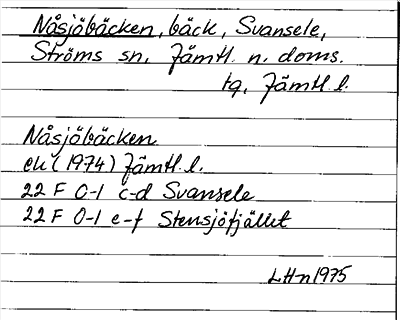 Nåsjöbäcken, bäck, Svansele,
Ströms sn, Jämtl. n. doms.
tg, Jämtl. l.
Nåsjöbäcken
ek (1974) Jämtl. l.
22 F 0-1 c-d Svansele
22 F 0-1 e-f Stensjöfjället
LHn 1975